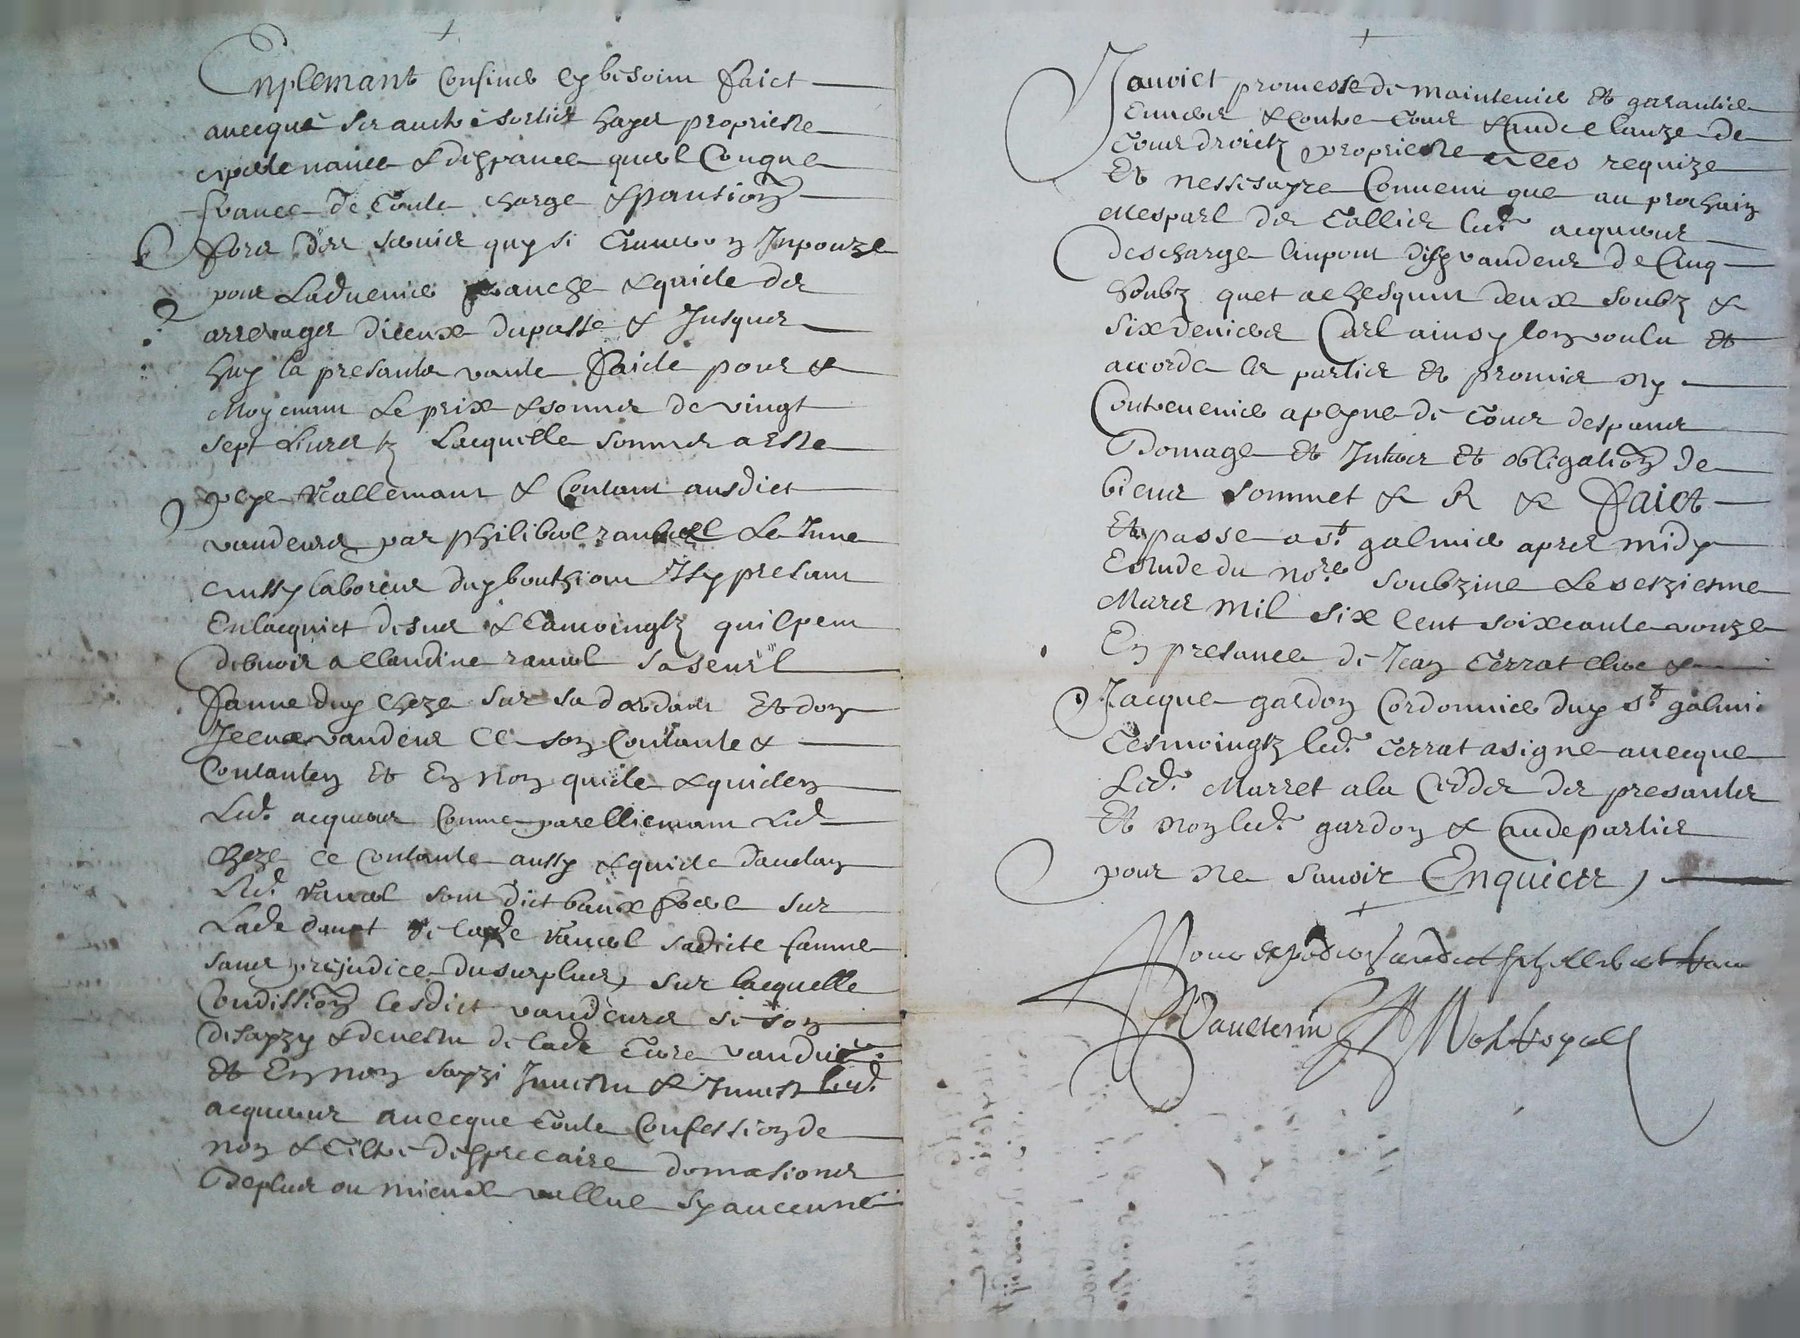 Emplemant Confins sy besoint faict
avecque ses antre sortie hayes proprieste
apartenance & despance quelconque
franc de toute charge & pantion
fors des servir quy si trouveron Inpouze
pour Ladvenir franche & quicte des
arrerages diceux du passe & Jusques
huy la presante vante faicte pour &
Moyenant Le prix & somme de vingt
sept Livres tz Lacquelle somme a este
peye reallemant & Contant ausdict
vandeurs par philibert ravel Le June
aussy laboreur duy Isy presant
Enlacquict desus & tamoingtz quil peut
debvoir a Claudine ravel sa seur
fanne duy cheze sur sa dot Et don
Iceux vandeur ce son Contante &
Contanten Et En Non quicte & quicten
Led. acquereur Comme parelliemant Led.
cheze ce Contante aussy & quicte dautan
Led. ravel son dict baux frere sur
Lade dot de lade ravel sadicte fanne
sans prejudice du surplus, sur lacquelle
Condission lesdict vandeurs se son
desayzy & devestu de lade terre vandue
et En Non sayzi Investu & Invest Led.
acquereur avecque toute Confession de
Non & tiltre de precaire domasione
De plus ou mieux vallue sy aucune
Y avoict promesse de maintenir Et garantir
Envers & Contre tous & autre clauze de
tous droictz proprieste a ces requize
Et nessesayre Convenu que au prochain
Mespart des tallies led. acquereur
deschargera lesd. vandeur de Cinq
soubz quet achesqun deux soubz &
six deniers Carl ainsy lon voulu Et
accorde les parties Et promis Ny
Contrevenir a peyne de tous despans
Domage Et Interes Et obligation de
biens sommet & R & faict
Et passe a St. galmier apres midy
Estude du Nore. soubzine Le seziesme
Mars mil six Cent soixcante unze
En presance de Jean terrat clerc &
Jacque gardon Cordonnier duy St. galmi.
tesmoingtz led. terrat a signe avecque
Led. Murret a la Cedde des presantes
Et Non led. gardon & autre parties
pour Ne savoir Enquiers,
Pour expedier audict phillibert Rav